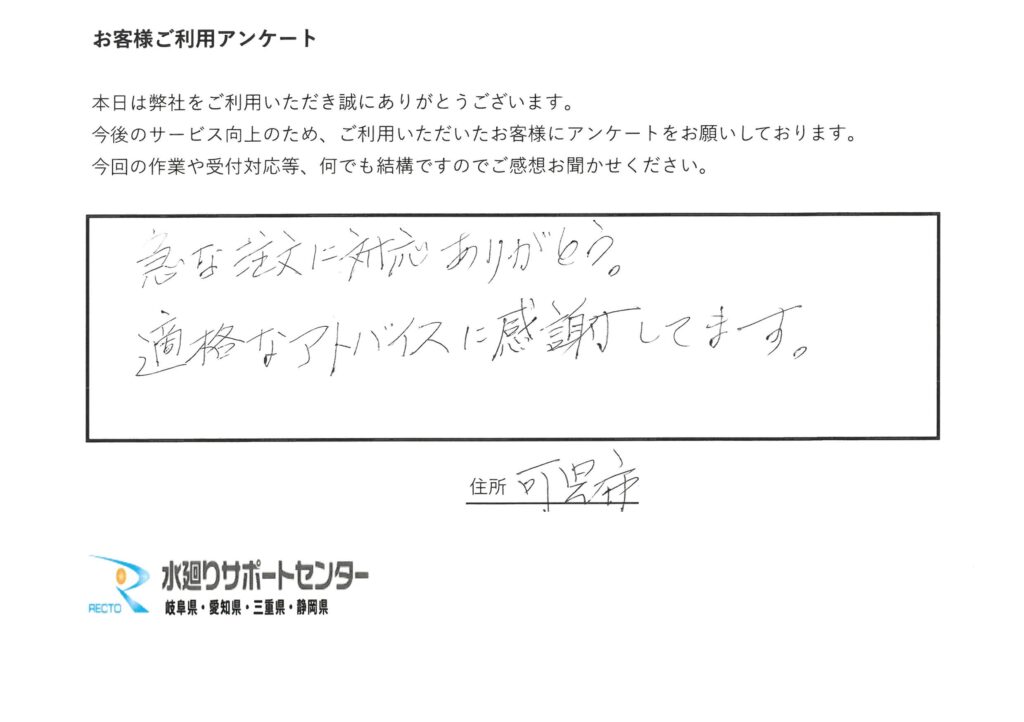 お客様ご利用アンケート
本日は弊社をご利用いただき誠にありがとうございます。
今後のサービス向上のため、ご利用いただいたお客様にアンケートをお願いしております。
今回の作業や受付対応等、何でも結構ですのでご感想お聞かせください。
急な注文に対応ありがとう。
適格なアトバイスに感謝してます。
住所 可児市
RECTO
水廻りサポートセンター
岐阜県・愛知県・三重県・静岡県